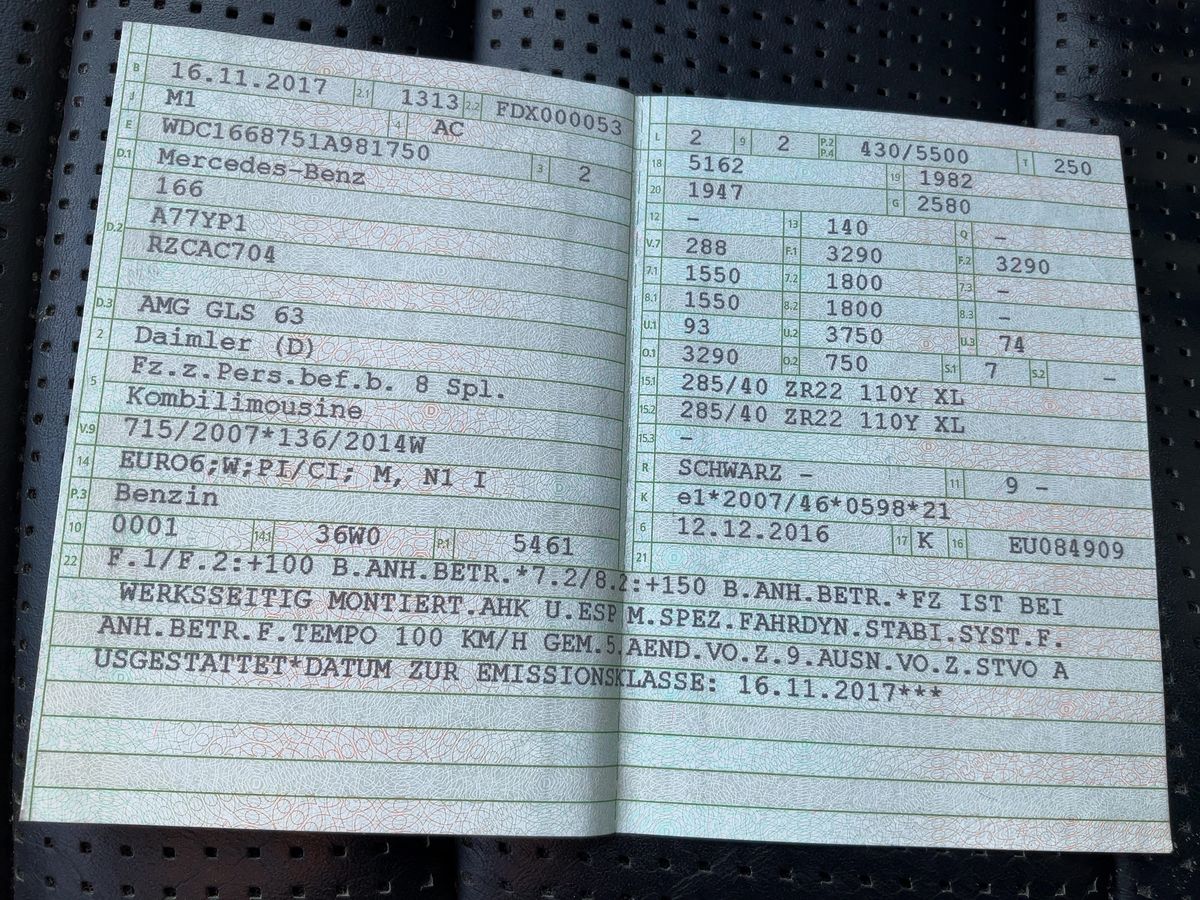 B 16.11.2017 2.1 1313 2.2 FDX000053
J M1 4 AC
E WDC1668751A981750 3 2
D.1 Mercedes-Benz
D.2 166
A77YP1
RZCAC704
D.3 AMG GLS 63
2 Daimler (D)
5 Fz.z.Pers.bef.b. 8 Spl.
Kombilimousine
V.9 715/2007*136/2014W
14 EURO6;W;PI/CI; M, N1 I
P.3 Benzin
10 0001 14.1 36W0 P.1 5461
L 2 9 2 P.2 P.4 430/5500 T 250
18 5162 19 1982
20 1947 G 2580
12 – 13 140 Q –
V.7 288 F.1 3290 F.2 3290
7.1 1550 7.2 1800 7.3 –
8.1 1550 8.2 1800 8.3 –
U.1 93 U.2 3750 U.3 74
O.1 3290 O.2 750 S.1 7 S.2 –
15.1 285/40 ZR22 110Y XL
15.2 285/40 ZR22 110Y XL
15.3 –
R SCHWARZ – 11 9 –
K e1*2007/46*0598*21
6 12.12.2016 17 K 16 EU084909
21
22 F.1/F.2:+100 B.ANH.BETR.*7.2/8.2:+150 B.ANH.BETR.*FZ IST BEI
WERKSSEITIG MONTIERT.AHK U.ESP M.SPEZ.FAHRDYN.STABI.SYST.F.
ANH.BETR.F.TEMPO 100 KM/H GEM.5.AEND.VO.Z.9.AUSN.VO.Z.STVO A
USGESTATTET*DATUM ZUR EMISSIONSKLASSE: 16.11.2017***